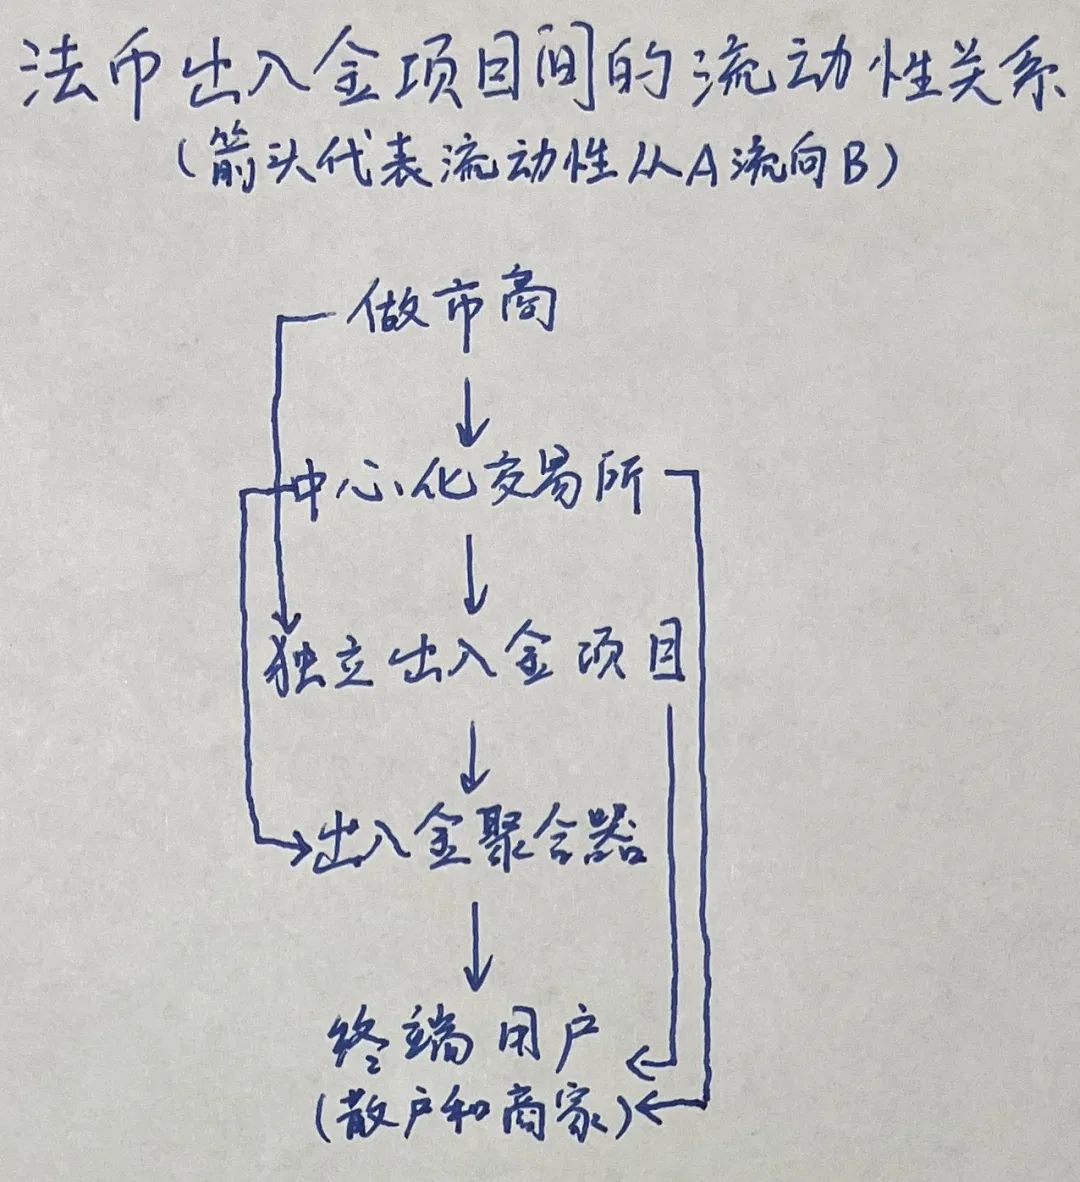 法币出入金项目间的流动性关系
(箭头代表流动性从A流向B)
做市商
中心化交易所
独立出入金项目
出入金聚合器
终端用户
(散户和商家)